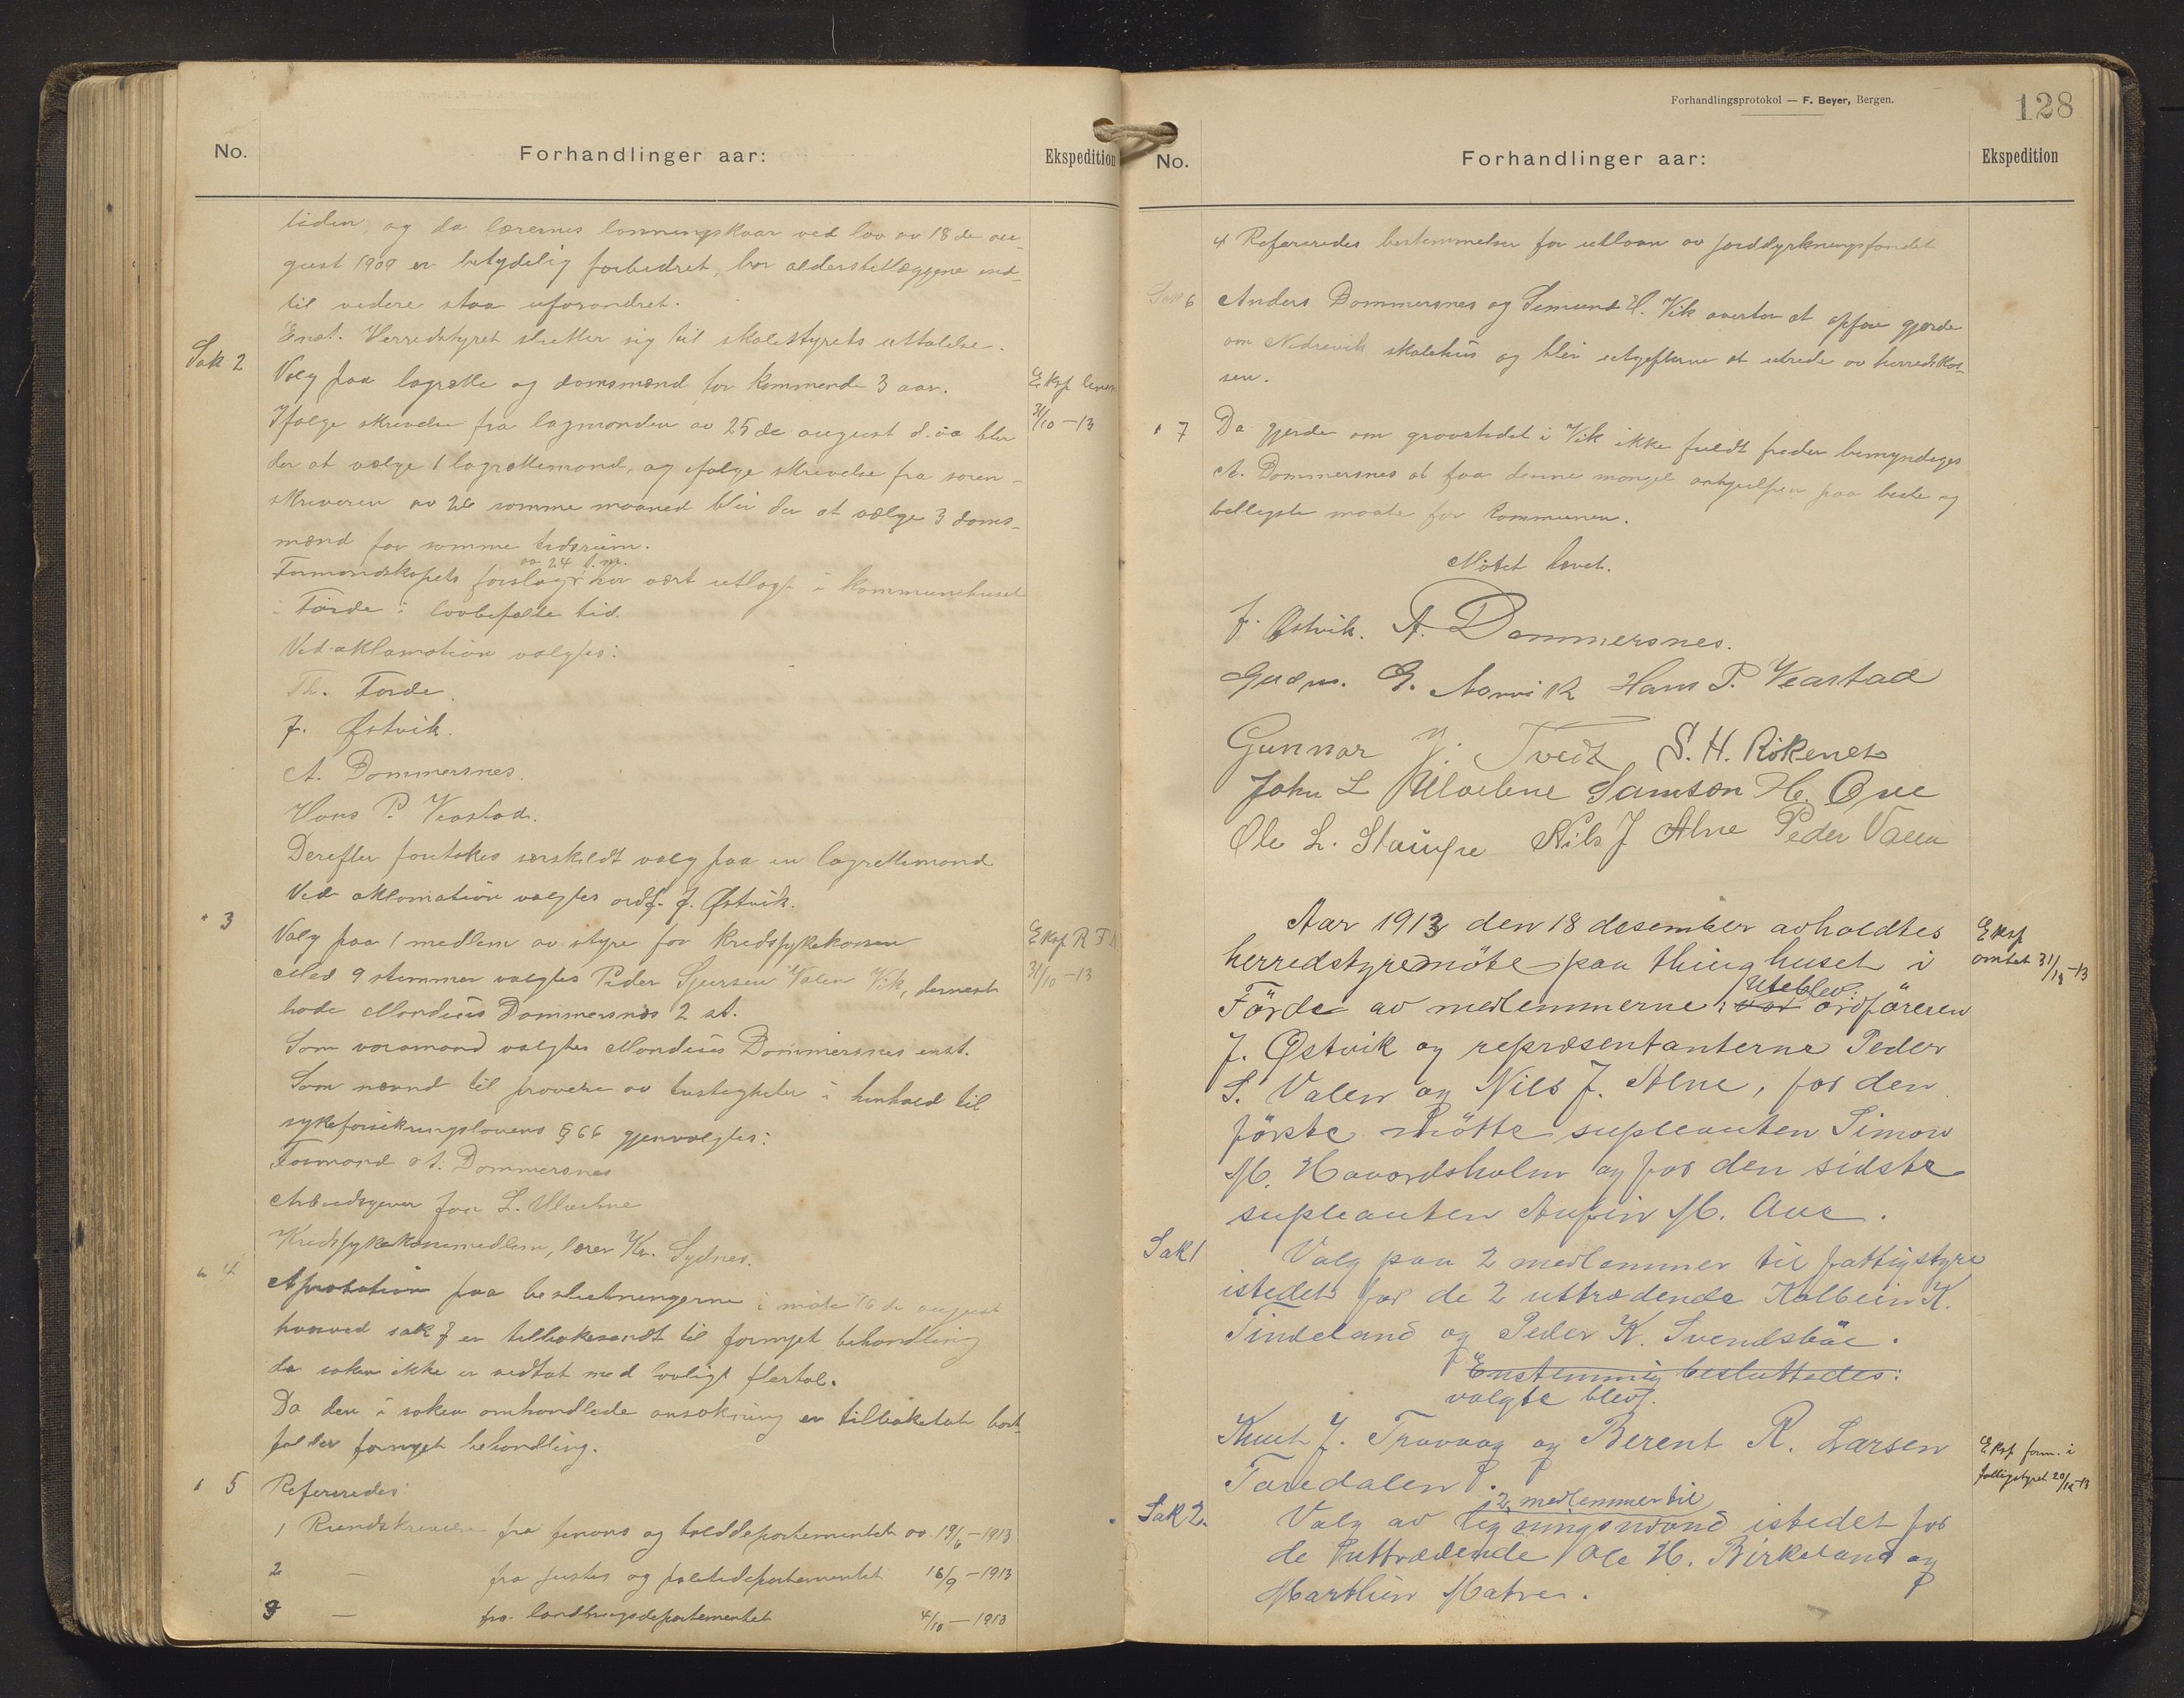 No. Forhandlinger aar: Ekspedition
tiden, og da lærernes lønningskaar ved lov av 18de au-
gust 1909 er betydelig forbedret, bør alderstillæggene ind-
til videre staa uforandret.
Enst. Herredstyret slutter sig til skolestyrets uttalelse.
Sak 2 Valg paa lagrette og domsmænd for kommende 3 aar.
Eksp
31/10-13
Ifølge skrivelse fra lagmanden av 25de august d. aa blir
der at vælge 1 lagrettemand, og ifølge skrivelse fra soren-
skriveren av 26 samme maaned blir der at vælge 3 doms-
mænd for samme tidsrum.
av 24 f.m.
Formandskapets forslag har vært utlagt i kommunehuset
i Førde i lovbefalte tid.
Ved aklamation valgtes:
Th. Førde.
J. Østvik.
A. Dommersnes.
Hans P. Veastad.
Derefter foretokes særskildt valg paa en lagrettemand
Ved aklamation valgtes ordf. J. Østvik.
" 3 Valg paa 1 medlem av styre for kredssykekassen
Eksp R.T.A.
31/10-13
Med 9 stemmer valgtes Peder Sjursen Valen Vik, dernest
hade Mandius Dommersnes 2 st.
Som varamand valgtes Mandius Dommersnes enst.
Som nævnd til prøvelse av tvistigheter i henhold til
sykeforsikringslovens § 66 gjenvalgtes:
Formand A. Dommersnes
Arbeidsgiver Joh L. Ulvebne
Kredssykekassemedlem, lærer Kr. Sydnes.
" 4 Aprobation paa beslutningerne i møte 16de august
hvorved sak 7 er tilbakesendt til fornyet behandling
da saken ikke er vedtat med lovligt flertal.
Da den i saken omhandlede ansøkning er tilbaketat bort-
falder fornyet behandling.
" 5 Refereredes:
1 Rundskrivelse fra finans og tolddepartementet av 19/6-1913
2 — fra justis og politidepartementet 16/9-1913
3 — fra landbrugsdepartementet 4/10-1913
Forhandlingsprotokol — F. Beyer, Bergen.
128
No. Forhandlinger aar: Ekspedition
4 Refereredes bestemmelser for utlaan av jorddyrkningsfondet
Sak 6 Anders Dommersnes og Simund H. Vik overtar at opføre gjærde
om Nedrevik skolehus og blir utgifterne at utrede av herredskas-
sen.
" 7 Da gjerde om gravstedet i Vik ikke fuldt freder bemyndiges
A. Dommersnes at faa denne mangel avhjulpen paa beste og
billigste maate for kommunen.
Møtet hævet.
J. Østvik. A. Dommersnes.
Gudm. G. Hans P. Veastad
Gunnar J. Tveit S. H. Rökenes
John L Ulvebne Samson H. Øve
Ole L. Stampe Nils J Alne Peder Valen
Aar 1913 den 18 desember avholdtes
Eksp
amtet 31/12-13
herredstyremöte paa thinghuset i
Uteblev:
Förde av medlemmerne var ordföreren
J. Østvik og repræsentanterne Peder
S. Valen og Nils J. Alne, for den
förste mötte supleanten Simon
M. Havordsholm og for den sidste
supleanten Anfin M. Aue.
Sak 1 Valg paa 2 medlemmer til fattigstyre
istedet for de 2 uttrædende Kolbein K.
Tindeland og Peder K. Svendsböe.
Enstemmig besluttedes:
valgte blev:
Knut J. Travaag og Berent R. Larsen
Eksp form. i
fattigstyret 20/12-13
Taredalen.
2 medlemmer til
Sak 2. Valg av ligningsnævnd istedet for
de 2 uttrædende Ole H. Birkeland og
Marthin Matre.